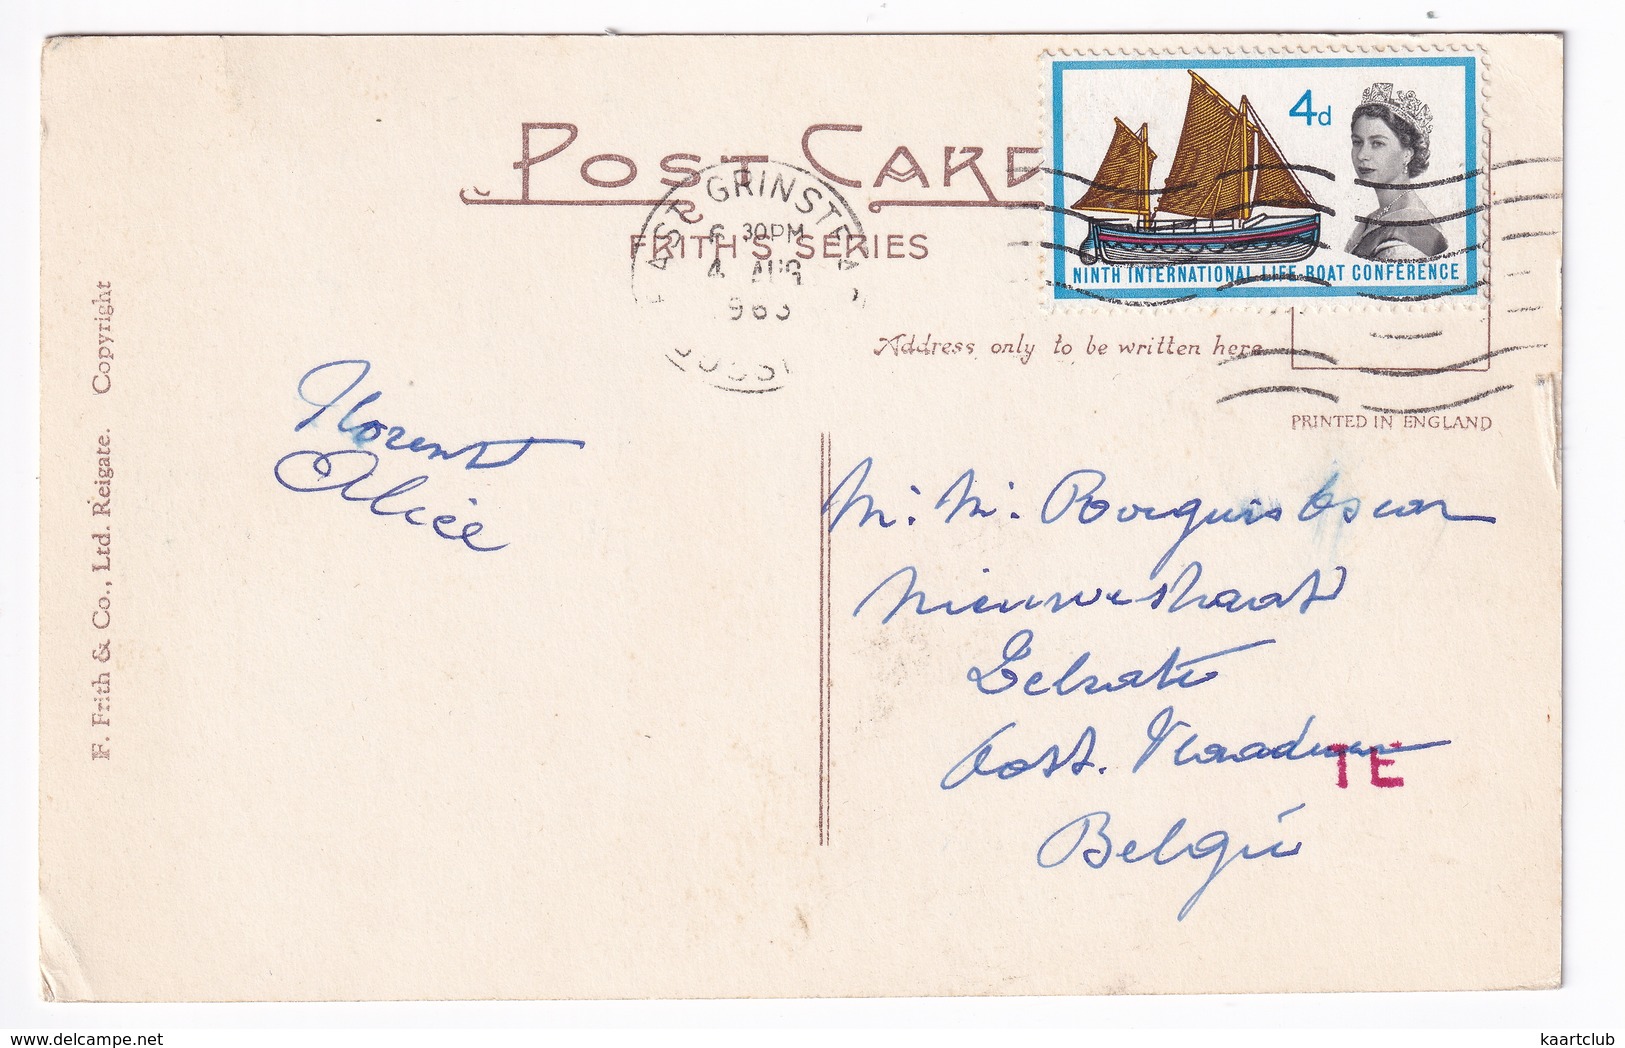 POST CARD
FRITH'S SERIES
4d
NINTH INTERNATIONAL LIFE-BOAT CONFERENCE
EAST GRINSTEAD
6 30PM
4 AUG
1963
SUSSEX
Address only to be written here
PRINTED IN ENGLAND
F. Frith & Co., Ltd. Reigate. Copyright
Florent
Alice
M. M. Oscar
Nieuwestraat
Zelzate
Oost. Vlaanderen
TE
België
kaartclub